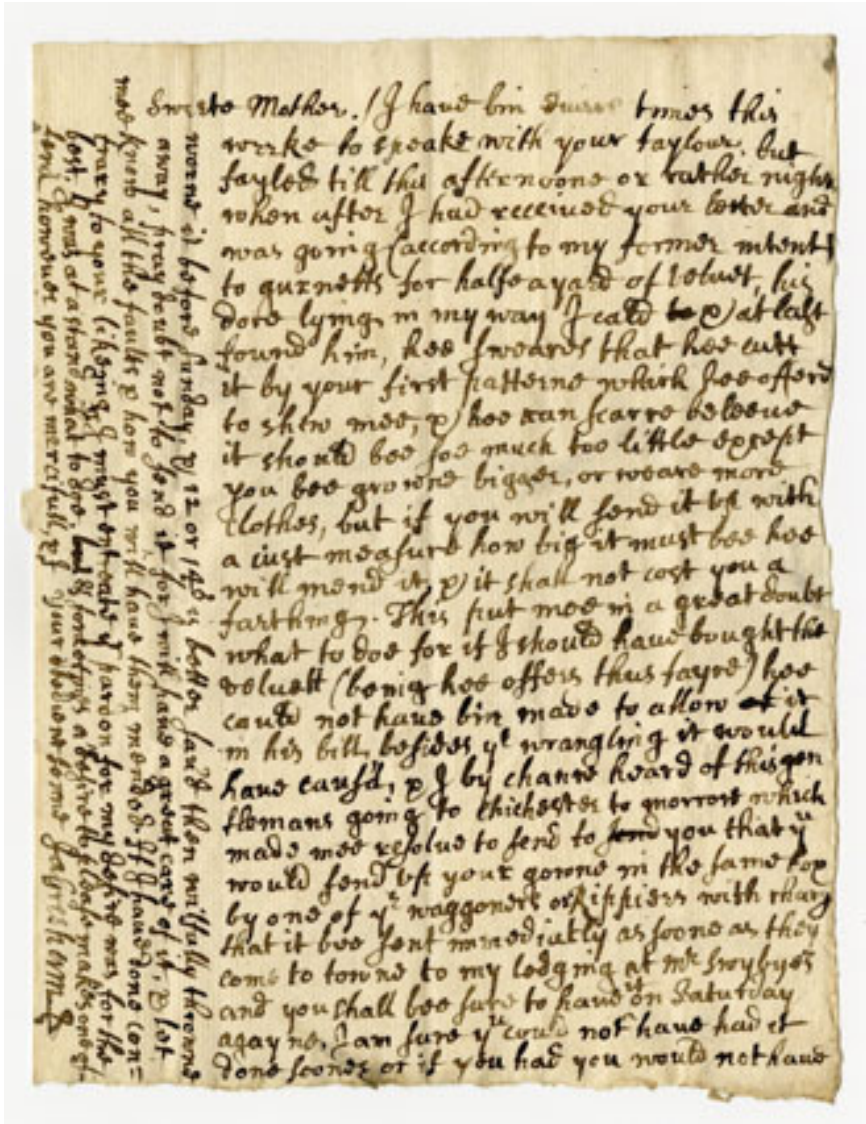 Sweete Mother. / I have bin divers times this
weeke to speake with your taylour, but
fayled till this afternoone or rather night
when after I had received your letter and
was going (according to my former intent)
to gurnetts for halfe a yard of velvet, his
dore lying in my way I cald & at last
found him, hee sweares that hee cutt
it by your first patterne which hee offerd
to shew mee, & hee can scarce beleeve
it should bee soe much too little except
you bee growne bigger, or weare more
clothes, but if you will send it up with
a iust measure how big it must bee hee
will mend it, & it shall not cost you a
farthing. This put mee in a great doubt
what to doe for if I should have bought the
velvett (being hee offers thus fayre) hee
could not have bin made to allow it
in his bill, besides yt wrangling it would
have causd, & I by chance heard of this gen
tlemans going to Chichester to morrow which
made mee resolve to send to you that yu
would send up your gowne in the same box
by one of yr waggoners or Rippiers with charg
that it bee sent immediatly as soone as they
come to towne to my lodging at Mr Swybyes
and you shall bee sure to have it on Saturday
agayne, I am sure yu could not have had it
done sooner or if you had you would not have
worne it before Sunday, & 12 or 14d is better savd then wilfully throwne
away, pray doubt not to send it for I will have a great care of it, & let
mee know all the faults & how you will have them mended. If I have done con=
trary to your likeing I must entreate yr pardon for my desire was for the
best. I was at a stand what to doe, a desire to please makes one of=
fend however you are mercifull, & I your obedient sonne